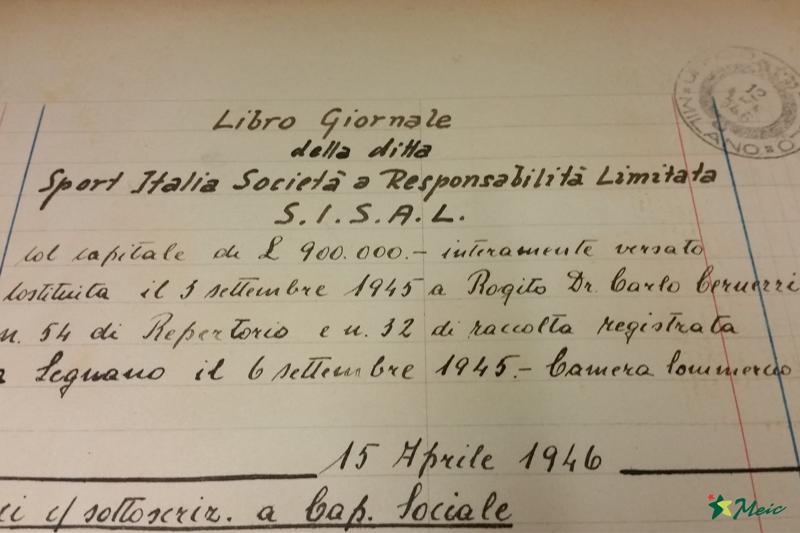 Libro Giornale
della ditta
Sport Italia Società a Responsabilità Limitata
S.I.S.A.L.
col capitale di £ 900.000.- interamente versato
Costituita il 5 settembre 1945 a Rogito Dr. Carlo
n. 54 di Repertorio e n. 32 di raccolta registrata
a Legnano il 6 settembre 1945.- Camera Commercio
15 Aprile 1946
c/ sottoscriz. a Cap. Sociale
MILANO
12
Meic